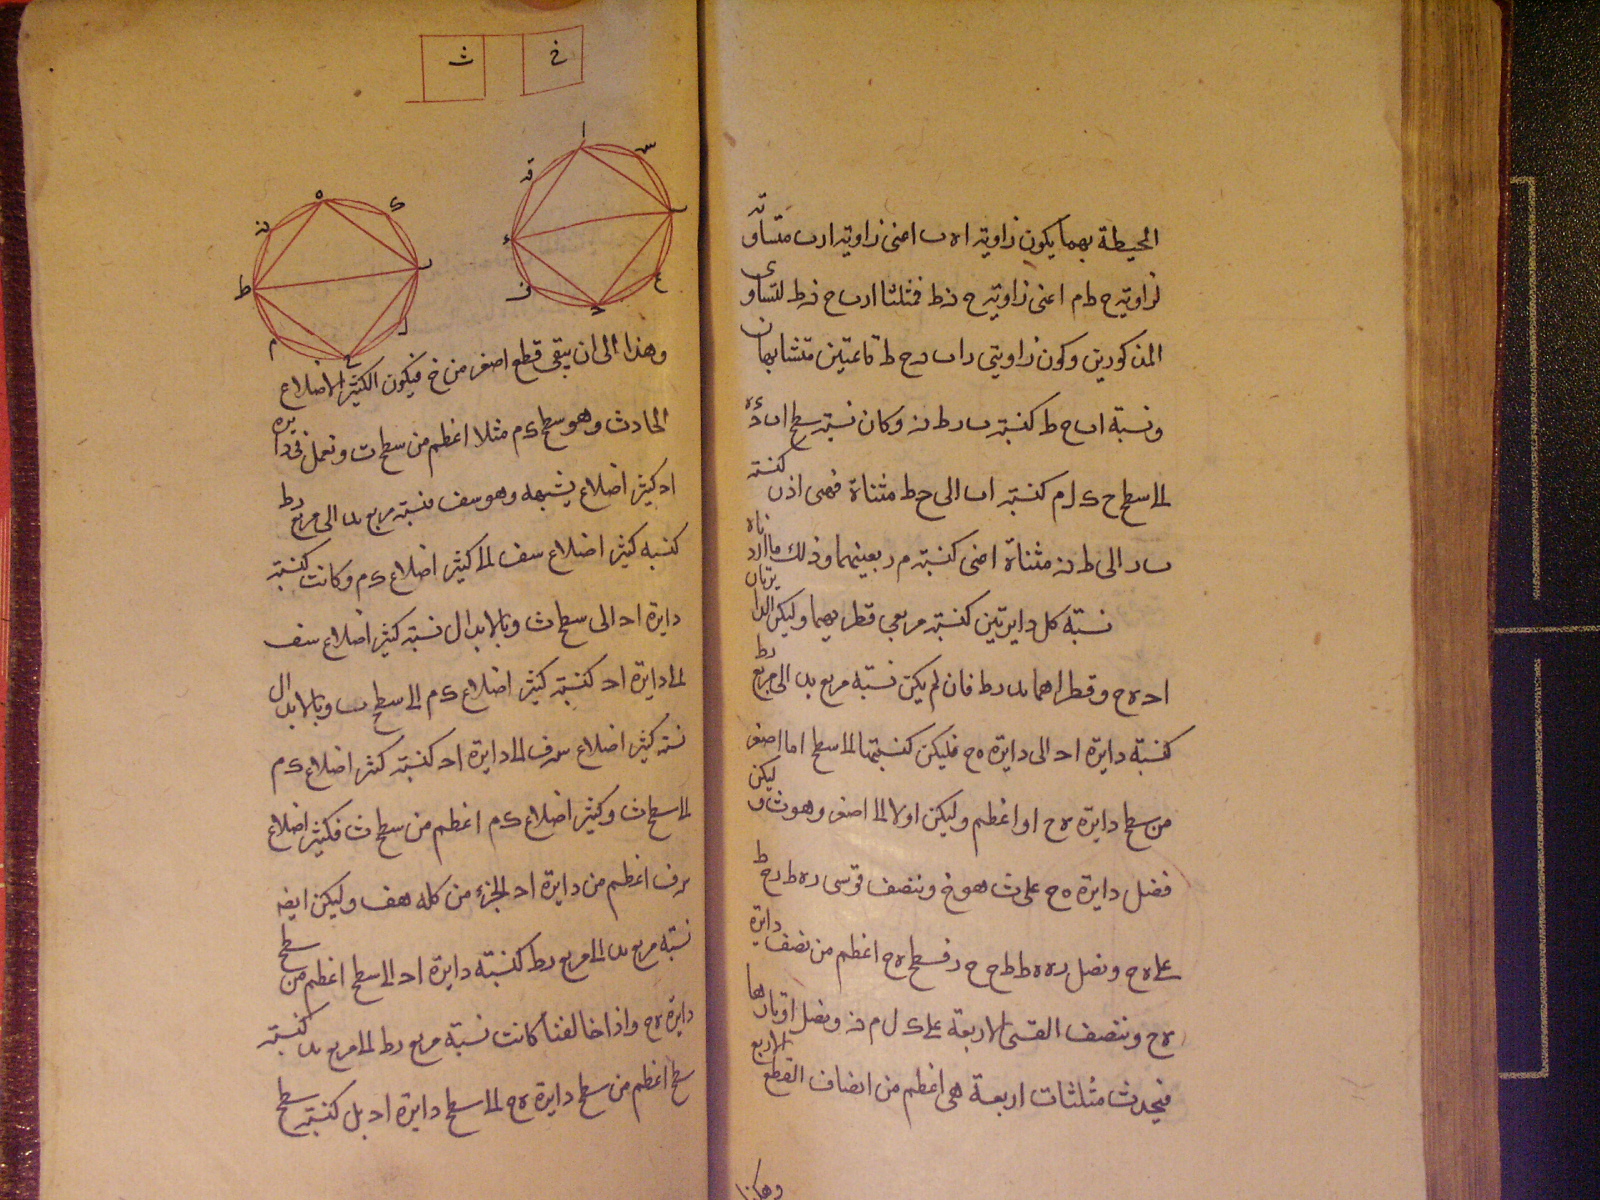 المحيطة بهما يكون زاوية ا ه ب اعنى زاوية ا ر ب متساوية
لزاوية ح ط م اعنى زاوية ح ن ط فمثلثا ا ر ب ح ن ط لتساوى
المذكورين وكون زاويتى ر ا ب ن ح ط قائمتين متشابهان
ونسبة ا ب ح ط كنسبة ب ر ط ن وكان نسبة سطح ا ب د ه
الى سطح ح ك ل م كنسبة ا ب الى ح ط مثناة فهى اذن كنسبة
ب ر الى ط ن مثناة اعنى كنسبة مربعيهما وذلك ما اردناه
نسبة كل دايرتين كنسبة مربعى قطريهما وليكن الدايرتان
ا د ه ح وقطراهما ب د ر ط فان لم يكن نسبة مربع ب د الى مربع ر ط
كنسبة دايرة ا د الى دايرة ه ح فليكن كنسبتها الى سطح اما اصغر
من سطح دايرة ه ح او اعظم وليكن اولا الى اصغر وهو ث وليكن
فضل دايرة ه ح على ث هو خ وننصف قوسى ر ه ط ر ح ط
على ه ح ونصل ر ه ه ط ط ح ح ر فسطح ه ح اعظم من نصف دايرة
ه ح وننصف القسى الاربعة على ك ل م ن ونصل اوتارها
فيحدث مثلثات اربعة هى اعظم من انصاف القطع الاربع
وهكذا
خ ث
ا س ب ع ح ف د ق
ه ك ر ل ح م ط ن
وهذا الى ان يبقى قطع اصغر من خ فيكون الكثير الاضلاع
الحادث وهو سطح ك م مثلا اعظم من سطح ث ونعمل فى دايرة
ا د كثير اضلاع يشبهه وهو س ف فنسبة مربع ب د الى مربع ر ط
كنسبة كثير اضلاع س ف الى كثير اضلاع ك م وكانت كنسبة
دايرة ا د الى سطح ث وبالابدال نسبة كثير اضلاع س ف
الى دايرة ا د كنسبة كثير اضلاع ك م الى سطح ث وبالابدال
نسبة كثير اضلاع س ف الى دايرة ا د كنسبة كثير اضلاع ك م
الى سطح ث وكثير اضلاع ك م اعظم من سطح ث فكثير اضلاع
س ف اعظم من دايرة ا د الجزء من كله هف وليكن ايضا
نسبة مربع ب د الى مربع ر ط كنسبة دايرة ا د الى سطح اعظم من سطح
دايرة ه ح واذا خالفنا كانت نسبة مربع ر ط الى مربع ب د كنسبة
سطح اعظم من سطح دايرة ه ح الى سطح دايرة ا د بل كنسبة سطح